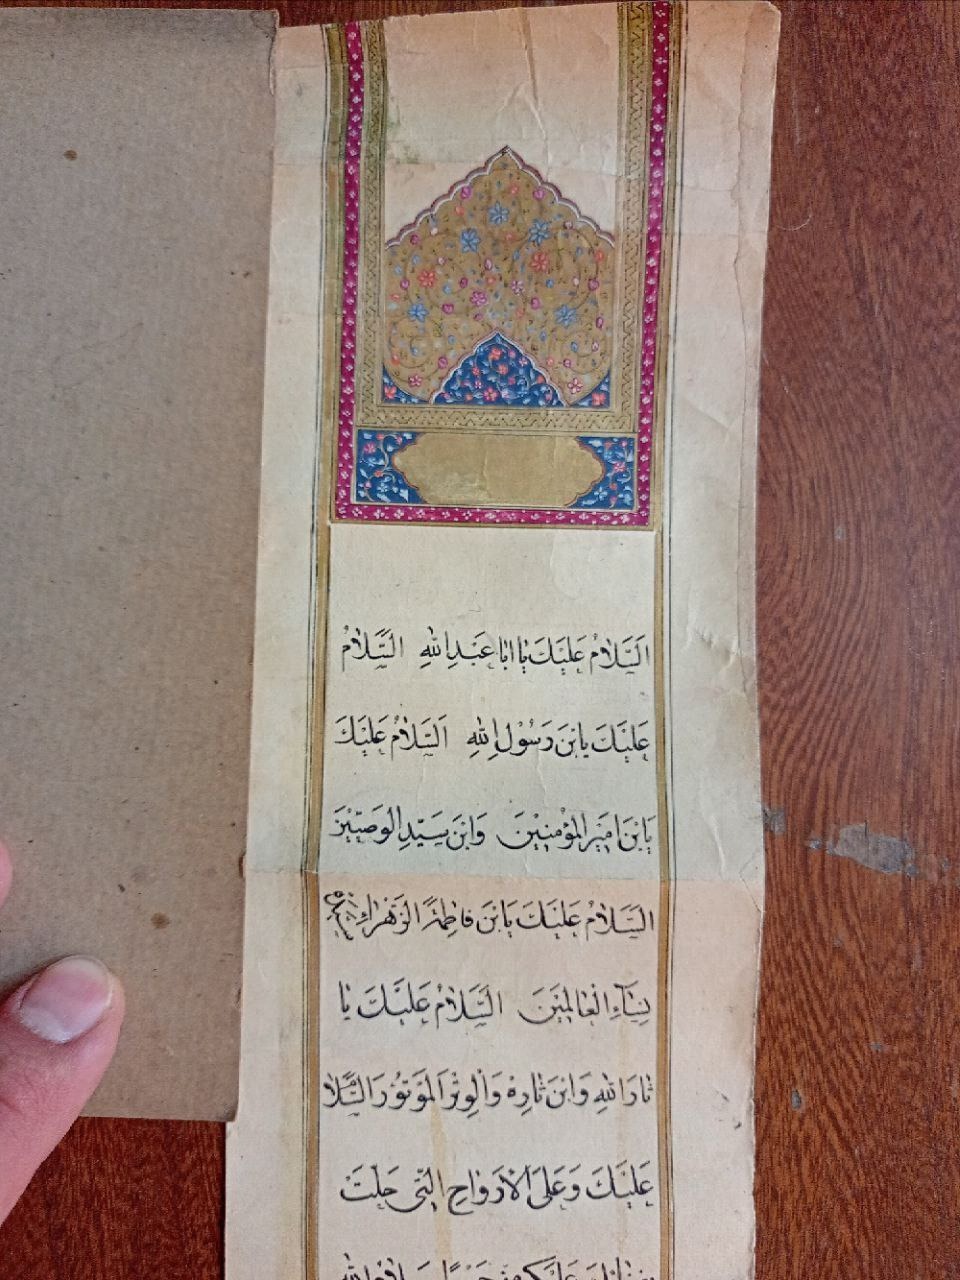 اَلسَّلامُ عَلَيْكَ يا اَبا عَبْدِ اللهِ اَلسَّلامُ
عَلَيْكَ يَابْنَ رَسُولِ اللهِ اَلسَّلامُ عَلَيْكَ
يَابْنَ اَمِيرِ الْمُؤْمِنِيْنَ وَابْنَ سَيِّدِ الْوَصِيِّيْنَ
اَلسَّلامُ عَلَيْكَ يَابْنَ فاطِمَةَ الزَّهْراءِ سَيِّدَةِ
نِساءِ الْعالَمِيْنَ اَلسَّلامُ عَلَيْكَ يا
ثارَ اللهِ وَابْنَ ثارِهِ وَالْوِتْرَ الْمَوْتُوْرَ اَلسَّلامُ
عَلَيْكَ وَعَلَى الْاَرْواحِ الَّتِي حَلَّتْ
بِفِنائِكَ عَلَيْكُمْ مِنِّي جَمِيْعًا سَلامُ اللهِ